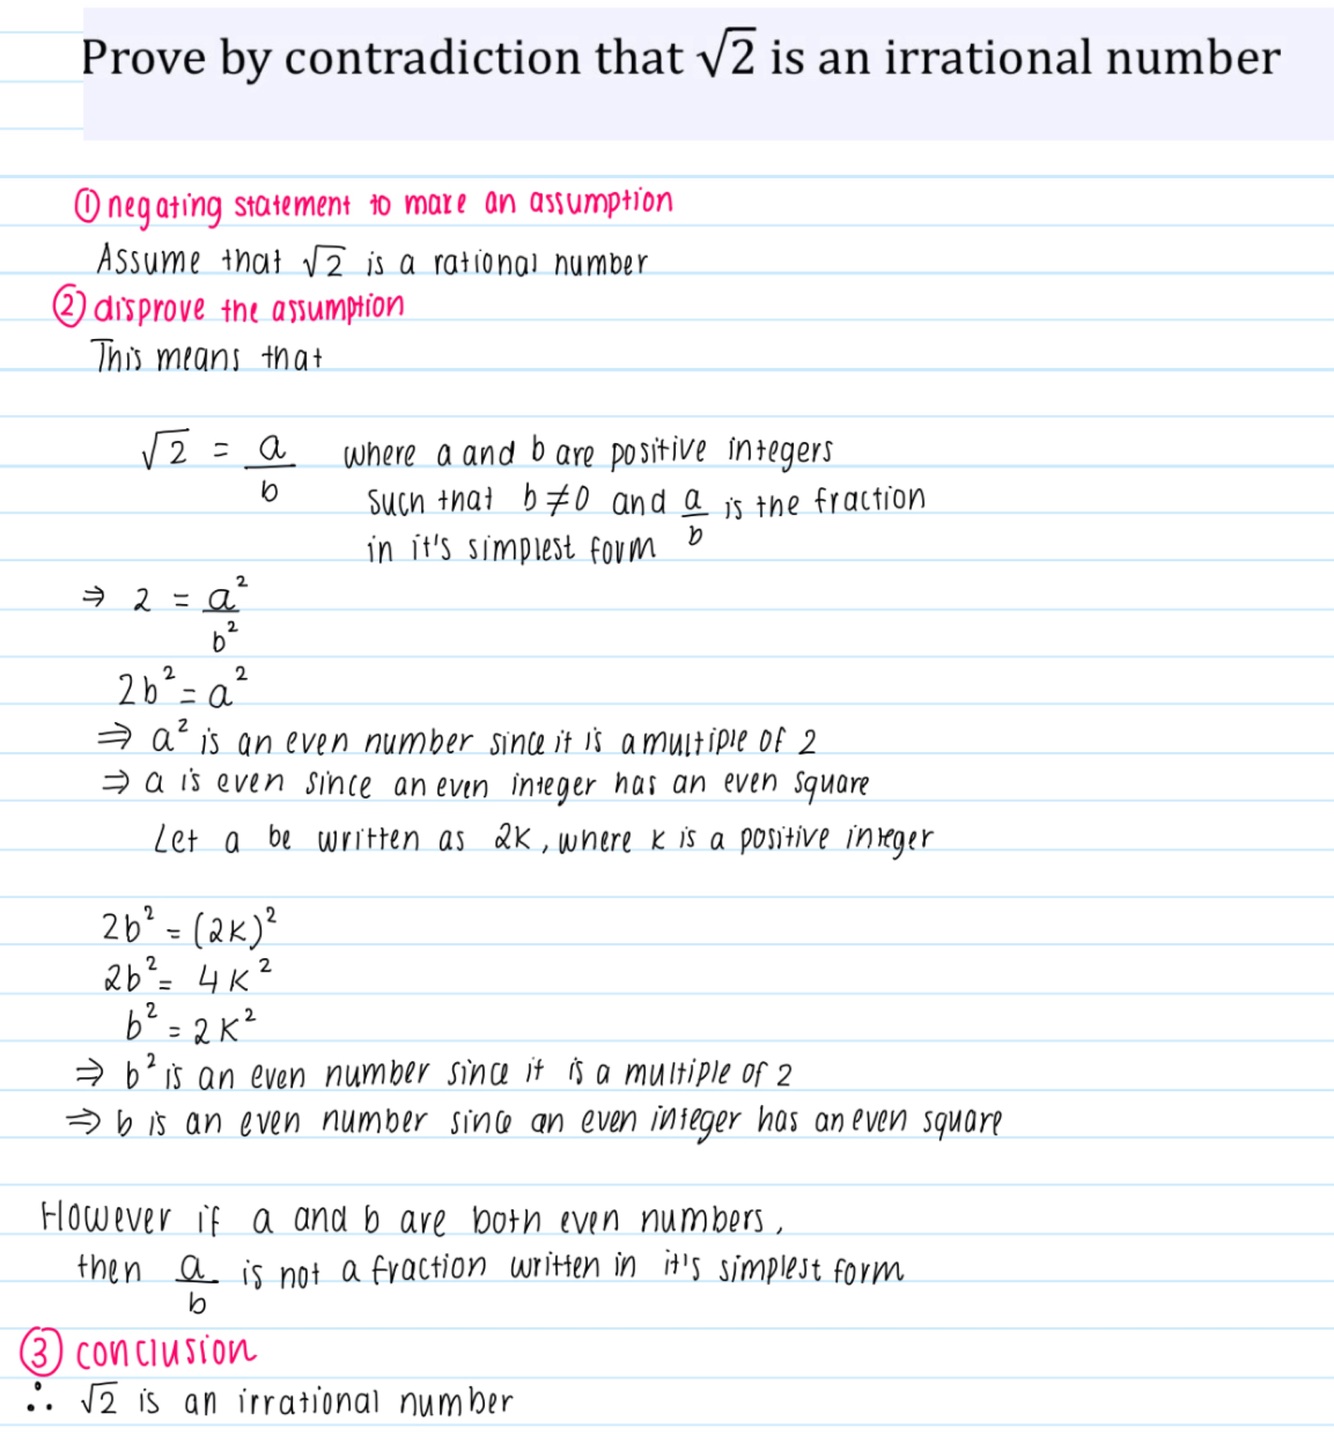 Prove by contradiction that √2 is an irrational number
① negating statement to make an assumption
Assume that √2 is a rational number
② disprove the assumption
This means that
√2 = a/b where a and b are positive integers
such that b≠0 and a/b is the fraction
in it's simplest form
⇒ 2 = a²/b²
2b² = a²
⇒ a² is an even number since it is a multiple of 2
⇒ a is even since an even integer has an even square
Let a be written as 2k, where k is a positive integer
2b² = (2k)²
2b² = 4k²
b² = 2k²
⇒ b² is an even number since it is a multiple of 2
⇒ b is an even number since an even integer has an even square
However if a and b are both even numbers,
then a/b is not a fraction written in it's simplest form
③ conclusion
∴ √2 is an irrational number